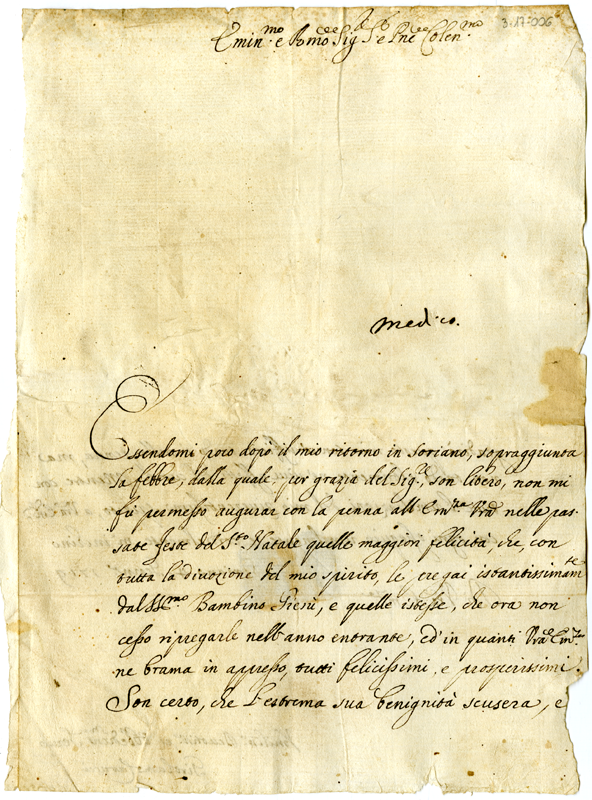 3-17-006
Emin.mo e Rmo Sig.re Sig.re e Pne Colen.mo
Medico.
Essendomi poco dopo il mio ritorno in Soriano, sopraggiunta
la febbre, dalla quale, per grazia del Sig.re, son libero, non mi
fù permesso augurar con la penna all' Em.za Vra nelle pas,
sate feste del S.to Natale quelle maggiori felicità che, con
tutta la divozione del mio spirito, le pregai istantissimam.te
dal SS.mo Bambino Giesù, e quelle istesse, che ora non
cesso ripregarle nell'anno entrante, ed in quanti Vra Em.za
ne brama in appresso, tutti felicissimi, e prosperissimi.
Son certo, che l'estrema sua benignità scuserà, e